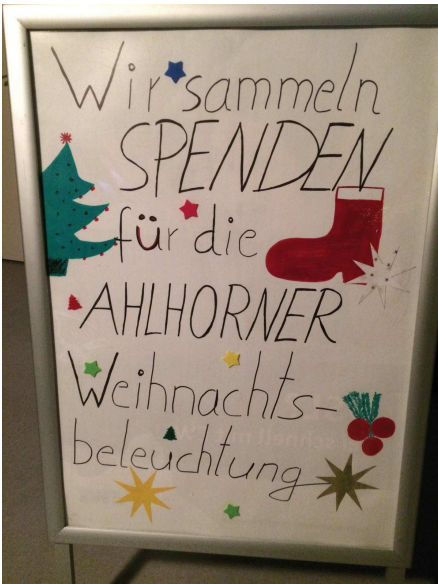 Wir sammeln
SPENDEN
für die
AHLHORNER
Weihnachts-
beleuchtung